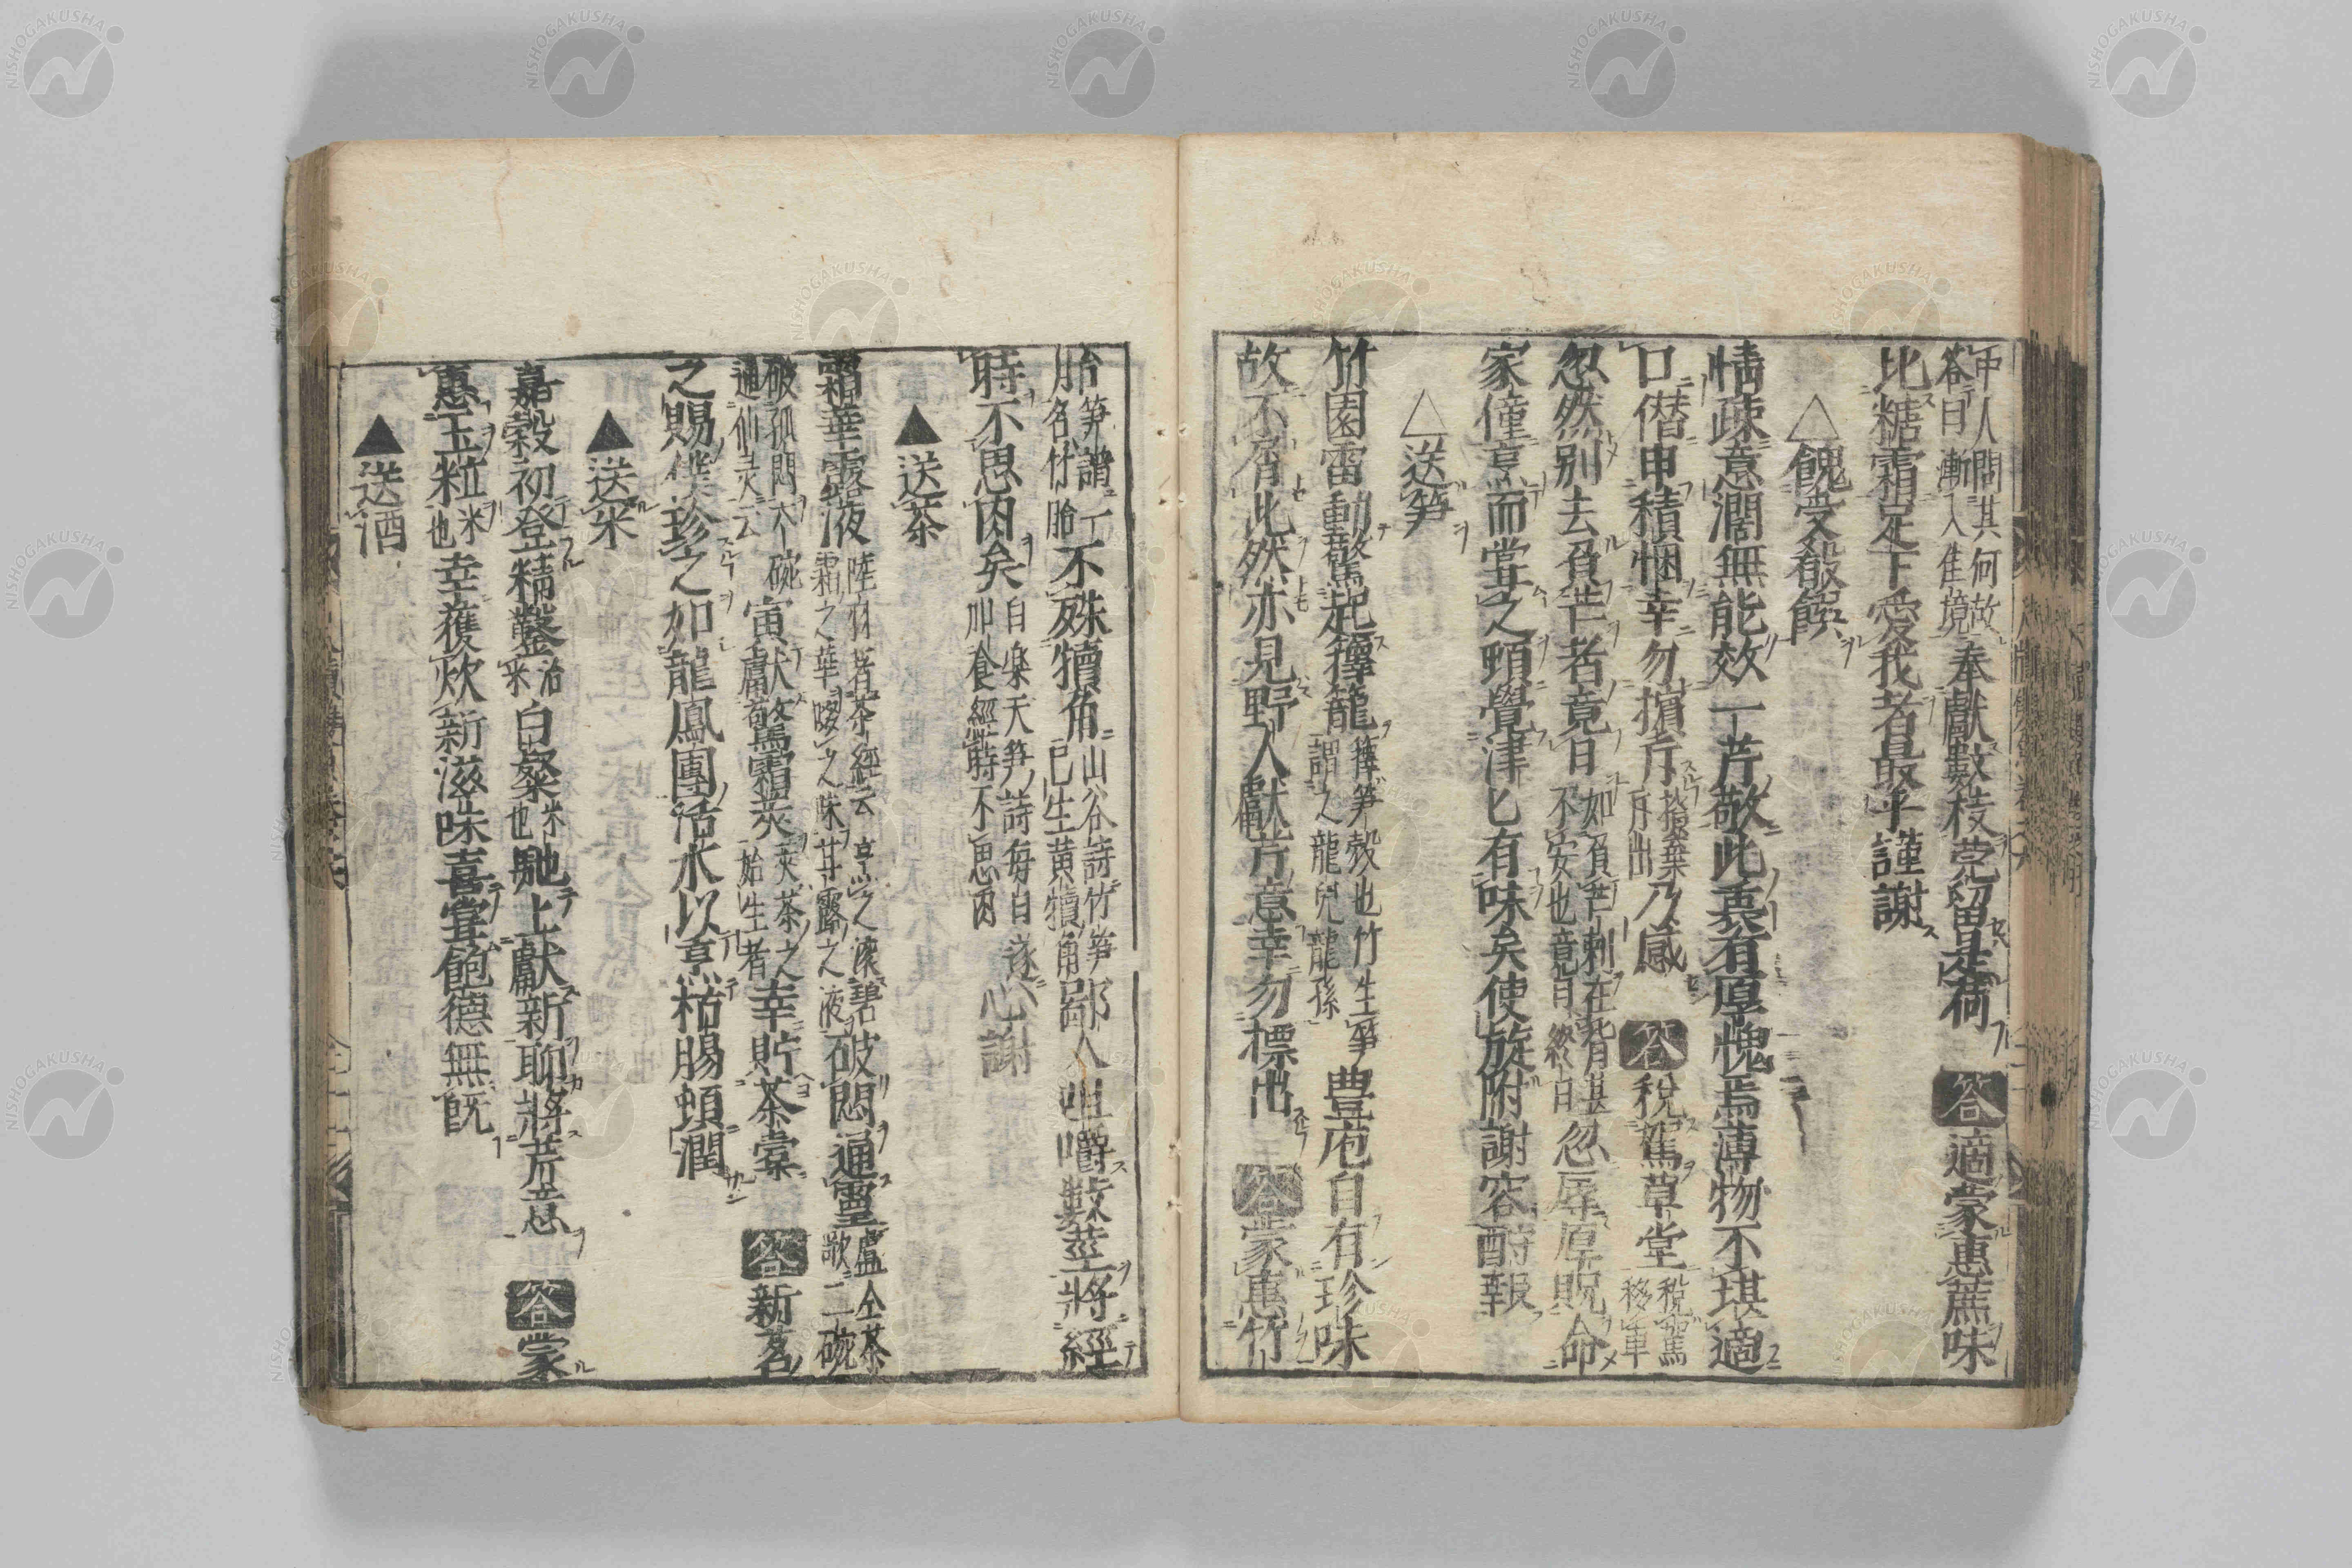 中人問其何故
答曰漸入佳境
奉獻數枝莞留是荷 答 適蒙惠蔗味
比糖霜足下愛我者最乎謹謝
△餽受殽饌
情疎意濶無能效一芹敬此衷有厚愧焉薄物不堪適
口僭申積悃幸勿擯斥
擯棄
斥出
乃感 答 稅駕草堂
稅駕
移車
忽然別去負芒者竟日
如負芒刺在背甚
不安也竟日終日
忽辱厚貺命
家僮烹而嘗之頓覺津匕有味矣使旋附謝容酧報
△送笋
竹園雷動驚起籜籠
籜笋殼也竹生笋
謂之龍兒龍孫
豊庖自有珍味
故不屑此然亦見野人獻芹意幸勿標出 答 蒙惠竹
胎
笋謂
名竹胎
不殊犢角
山谷詩竹笋
已生黃犢角
鄙人咀嚼數莖將經
時不思肉矣
白樂天笋詩每日
加食經時不思肉
遂心謝
▲送茶
霜華露液
陸羽著茶經云烹之滚碧
霜之華啜之味甘露之液
破悶通靈
盧仝茶
歌二碗
破孤悶六碗
通仙灵云
寅献鷰霜莢
莢茶之
始生者
幸貯茶棠 答 新茗
之賜僕珍之如龍鳳團活水以烹枯腸頓潤
▲送米
嘉穀初登精鑿
治
米
白粲
米
也
馳上獻新聊將芹意 答 蒙
惠玉粒
米
也
幸獲炊新滋味喜嘗飽德無旣
▲送酒